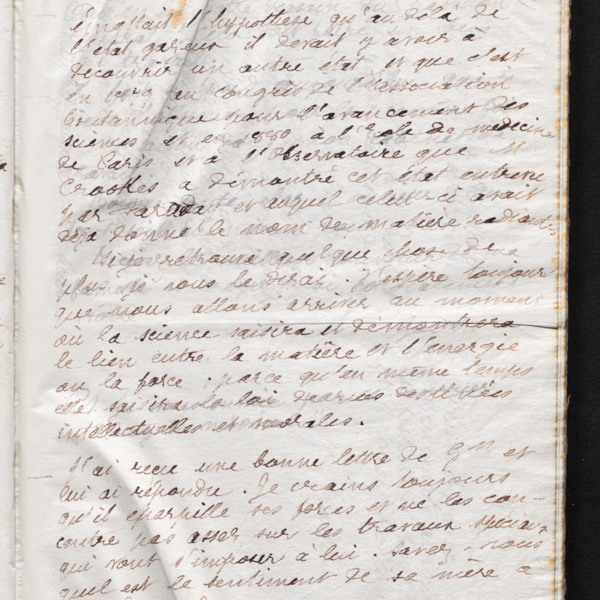 émettait l'hypothèse qu'au delà de
l'état gazeux il devait y avoir à
decouvrir un autre état et que c'est
en 1879 au congrès de l'association
Britannique pour l'avancement des
sciences et en 1880 à l'Ecole de medecine
de Paris et à l'Observatoire que M
Crookes a démontré cet état entrevu
par Faraday et auquel celui-ci avait
déjà donné le nom de matière radiante
Si je retrouve quelque chose de
plus je vous le dirai. J'espère toujours
que nous allons arriver au moment
où la science saisira et démontrera
le lien entre la matière et l'énergie
ou la force. parce qu'en même temps
elle saisira la loi de nos destinées
intellectuelles et morales.
J'ai reçu une bonne lettre de et
lui ai répondu. Je crains toujours
qu'il eparpille ses forces et ne les con-
centre pas assez sur les travaux spéciaux
qui vont s'imposer à lui. Savez-vous
quel est le sentiment de sa mère à